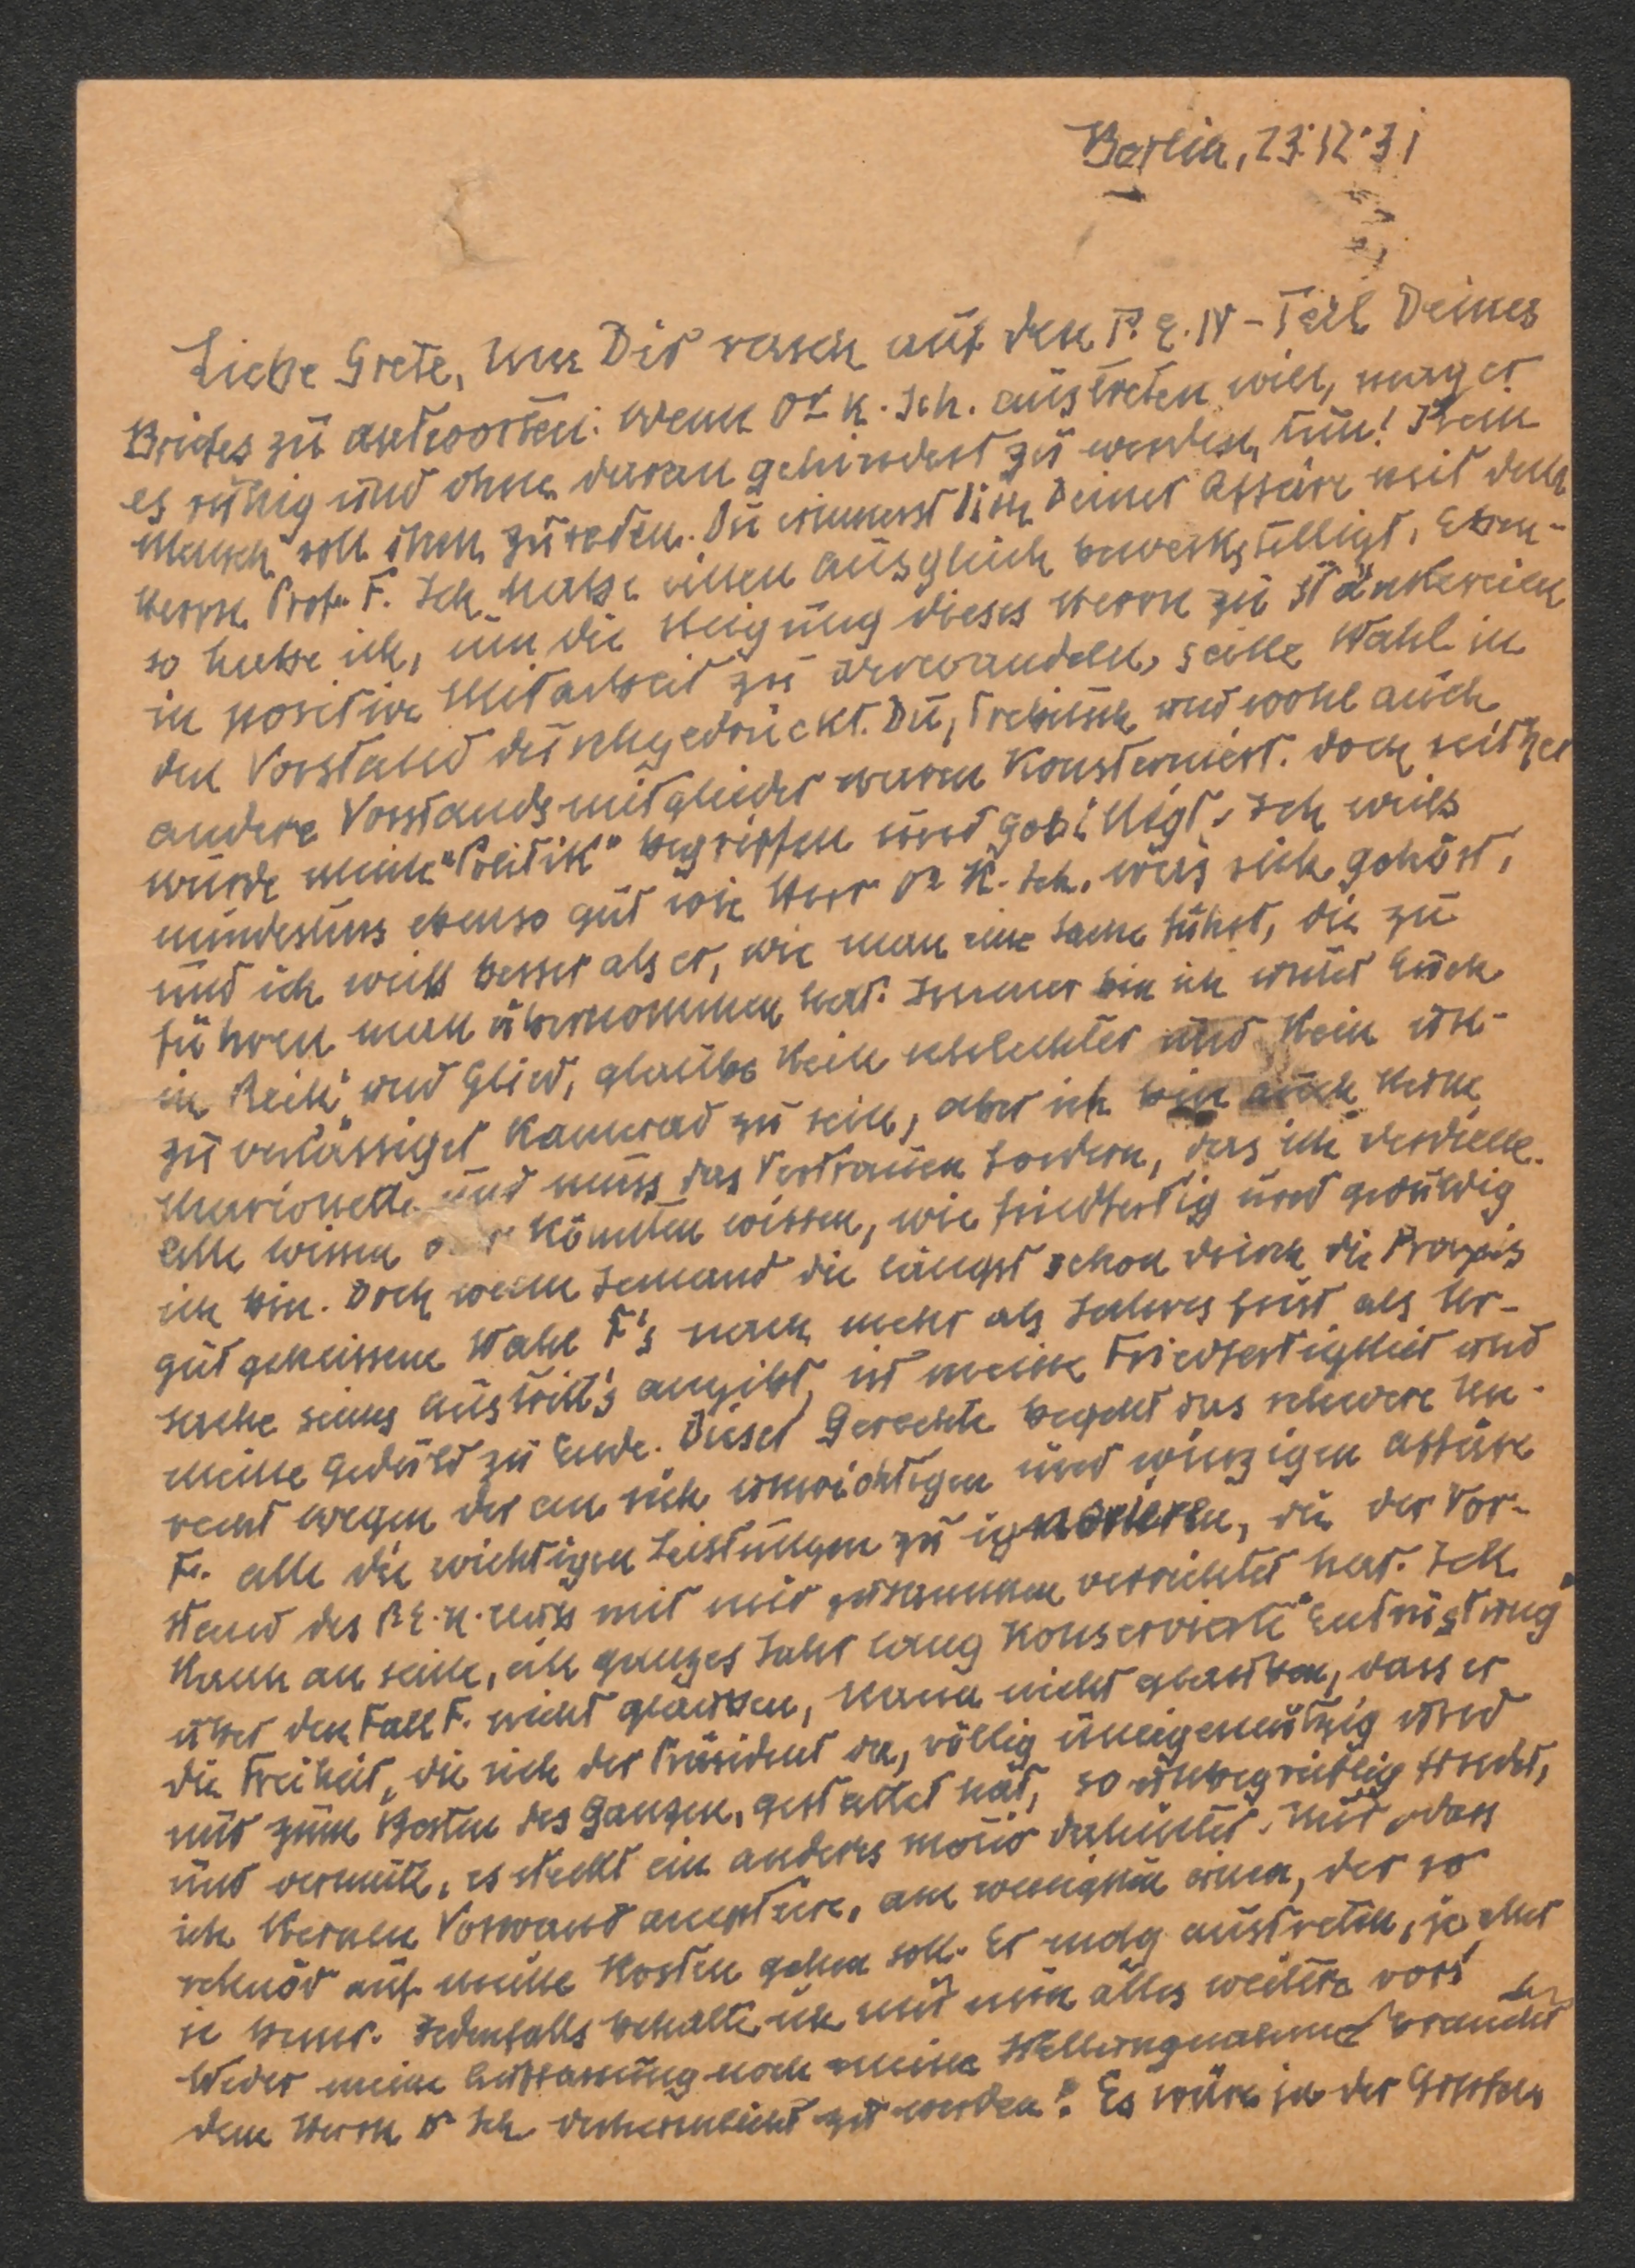 Berlin, 23.12.31
Liebe Grete, um Dir rasch auf den P.E.N-Teil Deines
Briefes zu antworten: wenn Dr K. Sch. austreten will, mag er
es ruhig und ohne daran gehindert zu werden, tun! Kein
Mensch soll ihm zureden. Du erinnerst Dich Deiner Affäre mit dem
Herrn Prof. F. Ich habe einen Ausgleich bewerkstelligt. Eben-
so habe ich, um die Neigung dieses Herrn zu Stänkereien
in positive Mitarbeit zu verwandeln, seine Wahl in
den Vorstand durchgedrückt. Du, Trebitsch und wohl auch
andere Vorstandsmitglieder waren konsterniert. Doch seither
wurde meine "Politik" begriffen und gebilligt. Ich weiss
mindestens ebenso gut wie Herr Dr K. Sch. was sich gehört,
und ich weiss besser als er, wie man eine Sache führt, die zu
führen man übernommen hat. Immer bin ich unter Euch
in Reih und Glied, glaube kein schlechter und kein un-
zuverlässiger Kamerad zu sein, aber ich bin auch keine
Marionette und muss das Vertrauen fordern, das ich verdiene.
Alle wissen oder könnten wissen, wie friedfertig und geduldig
ich bin. Doch wenn Jemand die längst schon durch die Praxis
gutgeheissene Wahl F's nach mehr als Jahresfrist als Ur-
sache seines Austritt's angibt, ist meine Friedfertigkeit und
meine Geduld zu Ende. Dieser Gerechte begeht das schwere Un-
recht wegen der an sich unwichtigen und winzigen Affäre
F. alle die wichtigen Leistungen zu ignorieren, die der Vor-
stand des P.E.N. Clubs mit mir zusammen verrichtet hat. Ich
kann an seine, ein ganzes Jahr lang konservierte "Entrüstung"
über den Fall F. nicht glauben, kann nicht glauben, dass er
die Freiheit, die sich der Präsident da, völlig uneigennützig und
nur zum Besten des Ganzen, gestattet hat, so unbegreiflich findet,
und vermute, es steckt ein anderes Motiv dahinter. Nur dass
ich keinen Vorwand akzeptiere, am wenigsten einen, der so
schnöd auf meine Kosten gehen soll. Er mag austreten, je eher
je besser. Jedenfalls behalte ich mir nun alles weitere vor!
Weder meine Auffassung noch meine Stellungnahme braucht
dem Herrn Dr Sch verheimlicht zu werden. Es wäre ja der